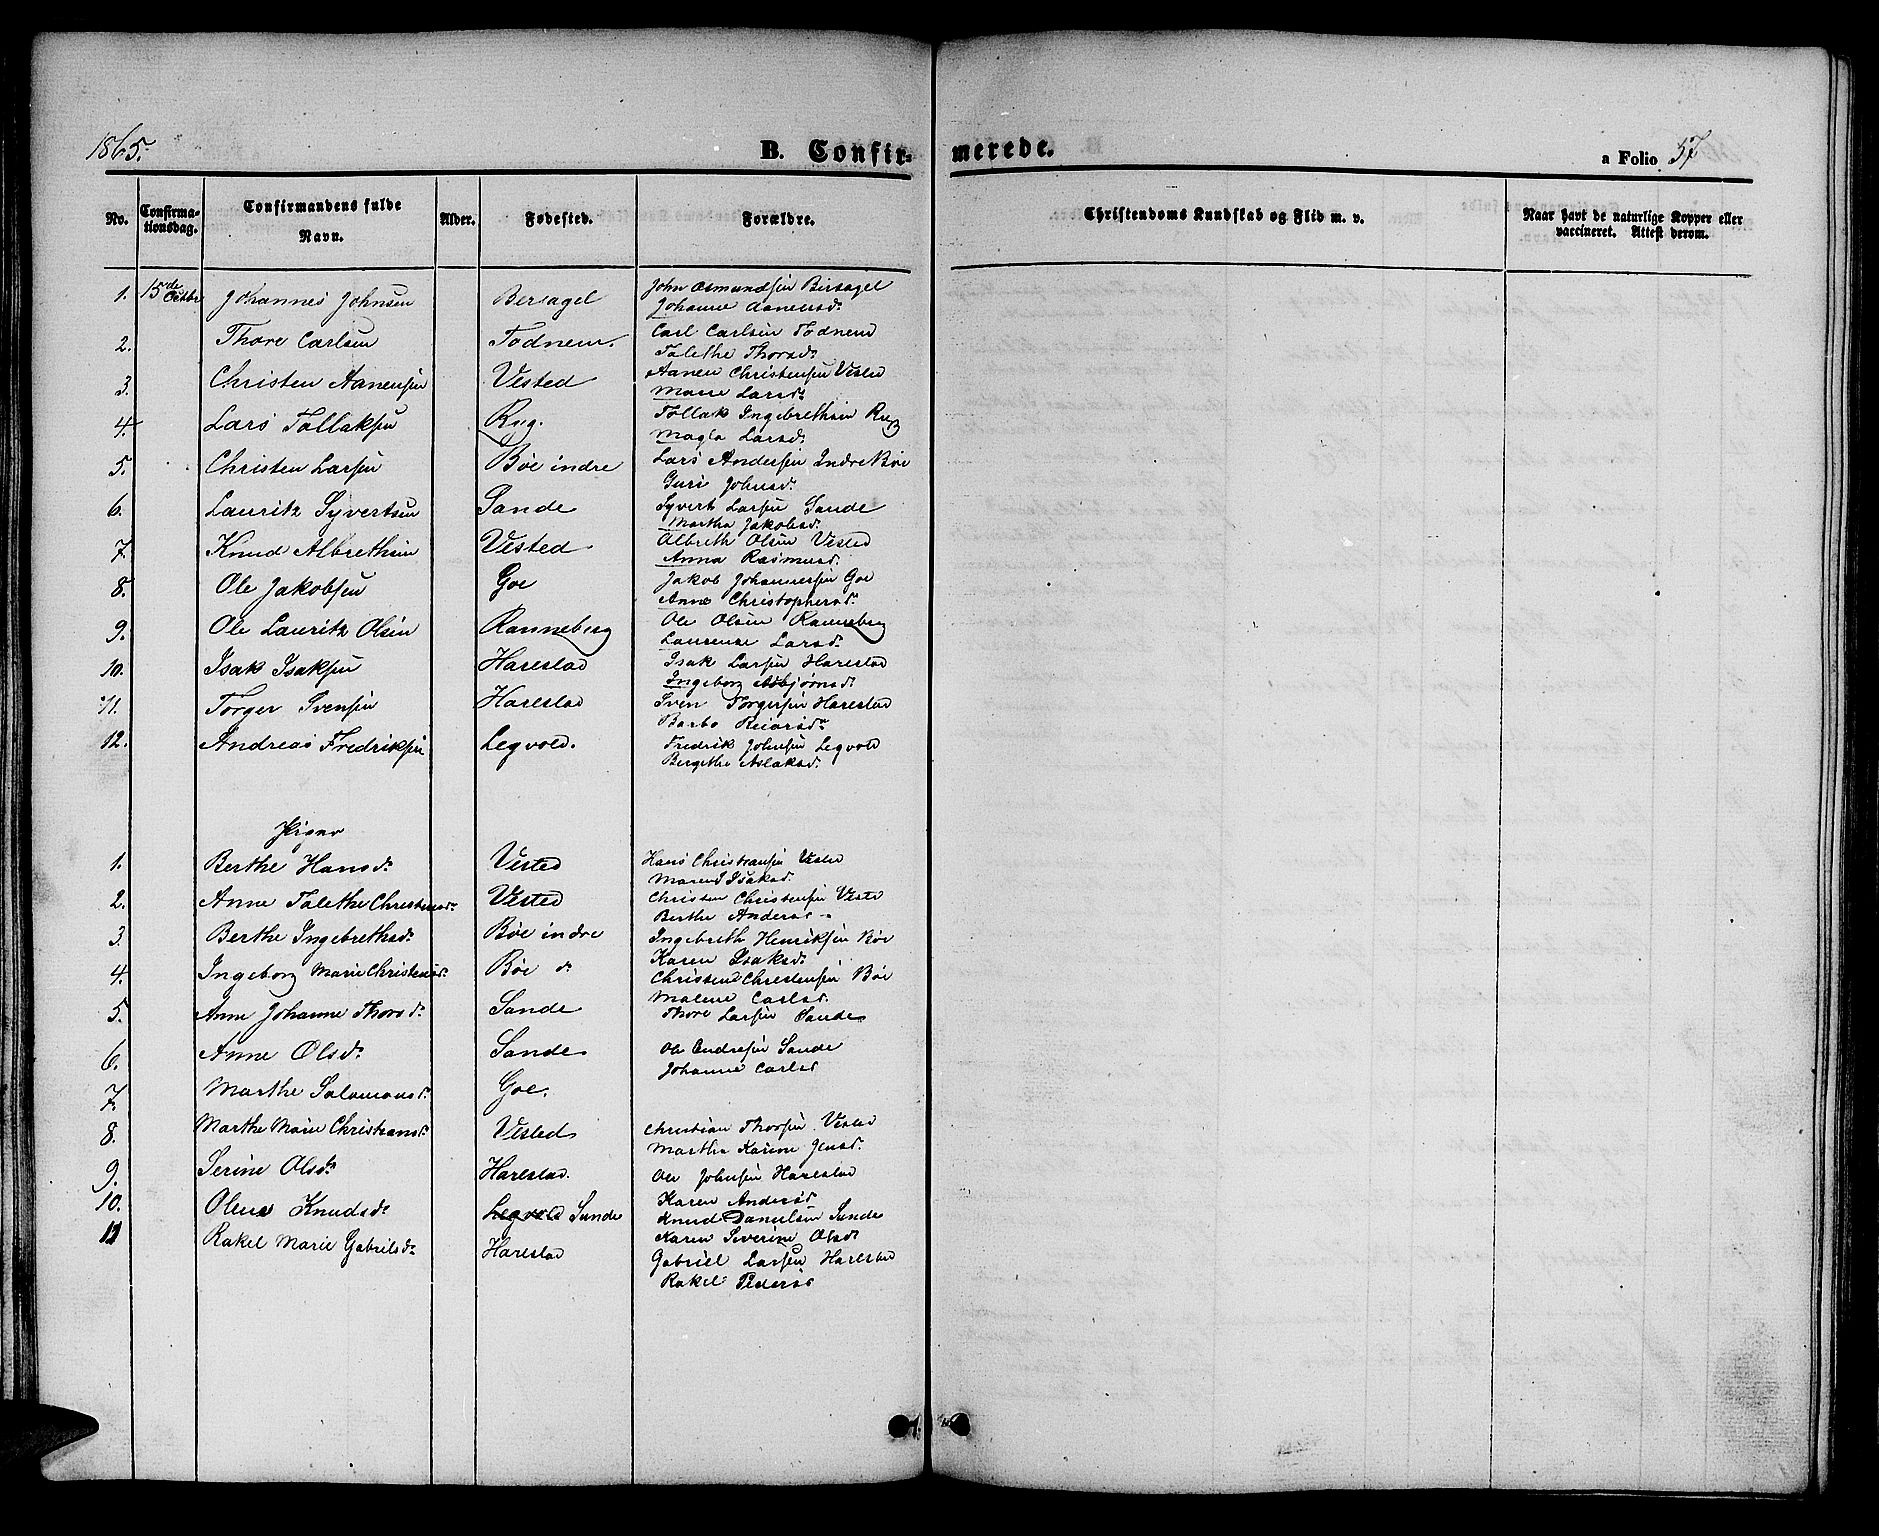 1865.
B. Confirmerede.
a Folio 57
No. Confirmationsdag. Confirmandens fulde Navn. Alder. Fødested. Forældre. Christendoms Kundskab og Flid m. v. Naar havt de naturlige Kopper eller vaccineret. Attest derom.
1. 15de Octbr Johannes Johnsen Bersagel John Osmundsen Birsagel
Johanne Aanensd.
2. Thore Carlsen Todnem. Carl Carlsen Todnem
Talethe Thorsd.
3. Christen Aanensen Vested Aanen Christensen Vested
Maren Larsd.
4. Lars Tollaksen Rug. Tollak Ingebrethsen Rug
Magla Larsd.
5. Christen Larsen Bøe indre Lars Andersen Indre Bøe
Guri Johnsd.
6. Lauritz Syvertsen Sande Syvert Larsen Sande
Martha Jakobsd.
7. Knud Albrethsen Vested Albreth Olsen Vested
Anna Rasmusd.
8. Ole Jakobsen Goe Jakob Johannessen Goe
Anne Christophersd.
9. Ole Lauritz Olsen Ranneberg Ole Olsen Ranneberg
Laurense Larsd.
10. Isak Isaksen Harestad Isak Larsen Harestad
Ingeborg Asbjørnsd.
11. Torger Svensen Harestad Sven Torgersen Harestad
Barbo Reiarsd.
12. Andreas Fredriksen Legvold. Fredrik Johnsen Legvold
Bergithe Aslaksd.
Piger
1. Berthe Hansd. Vested Hans Christiansen Vested
Maren Isaksd.
2. Anne Talethe Christensd. Vested Christen Christensen Vested
Berthe Andersd
3. Berthe Ingebrethsd. Bøe indre Ingebreth Henriksen Bøe
Karen Isaksd.
4. Ingeborg Marie Christensd. Bøe d. Christen Christensen Bøe
Malene Carlsd.
5. Anne Johanne Thorsd. Sande Thore Larsen Sande
6. Anne Olsd. Sande Ole Endresen Sande
Johanne Carlsd
7. Marthe Salomonsd. Goe.
8. Marthe Marie Christiansd. Vested Christian Thorsen Vested
Martha Karine Jensd.
9. Serine Olsd. Harestad. Ole Johnsen Harestad
Karen Andersd
10. Olene Knudsd. Legvold Sunde Knud Danielsen Sunde
Karen Severine Olsd
11 Rakel Marie Gabrielsd. Harestad Gabriel Larsen Harestad
Rakel Pedersd